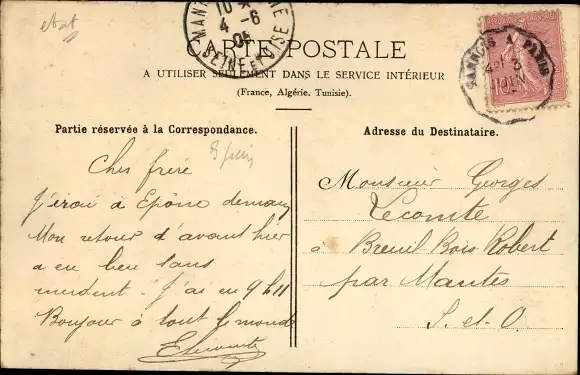 etat
10
4 -6
05
SEINE ET OISE
CARTE POSTALE
A UTILISER SEULEMENT DANS LE SERVICE INTÉRIEUR
(France, Algérie, Tunisie).
SANNOIS A PARIS
Partie réservée à la Correspondance.
Adresse du Destinataire.
Cher frère
J'irai à Epône demain
Mon retour d'avant hier
a eu lieu sans
J'ai eu 9h11
Bonjour à tout le monde
Monsieur Georges
Lecomte
à Breuil Bois Robert
par Mantes
S. et. O.